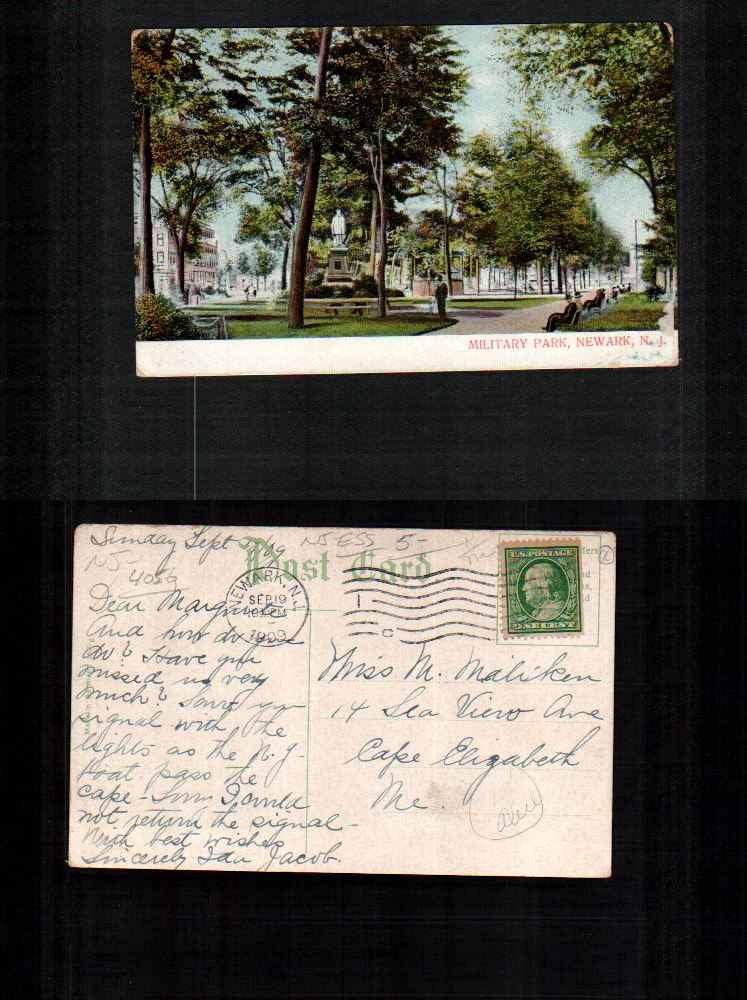 MILITARY PARK, NEWARK, N. J.
Sunday Sept 19/09
NJ ESS 5-
NJ-
4059
Post Card
NEWARK, N.J.
SEP 19
PM
1909
1
C
U.S. POSTAGE
ONE CENT
Dear Marguerite
And how do you
do? Have you
missed us very
much? Saw your
signal with the
lights as the N.Y.
boat pass the
cape - Sorry I could
not return the signal -
With best wishes
Sincerely Ida Jacob.
Miss M. Maliken
14 Sea View Ave
Cape Elizabeth
Me.